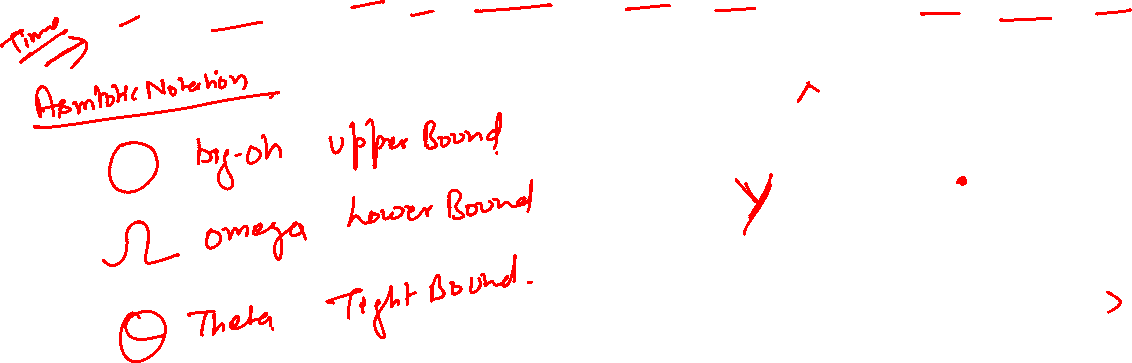 Time
Asmtotic Notation
O big-oh upper Bound
Ω omega Lower Bound
y
Θ Theta Tight Bound.